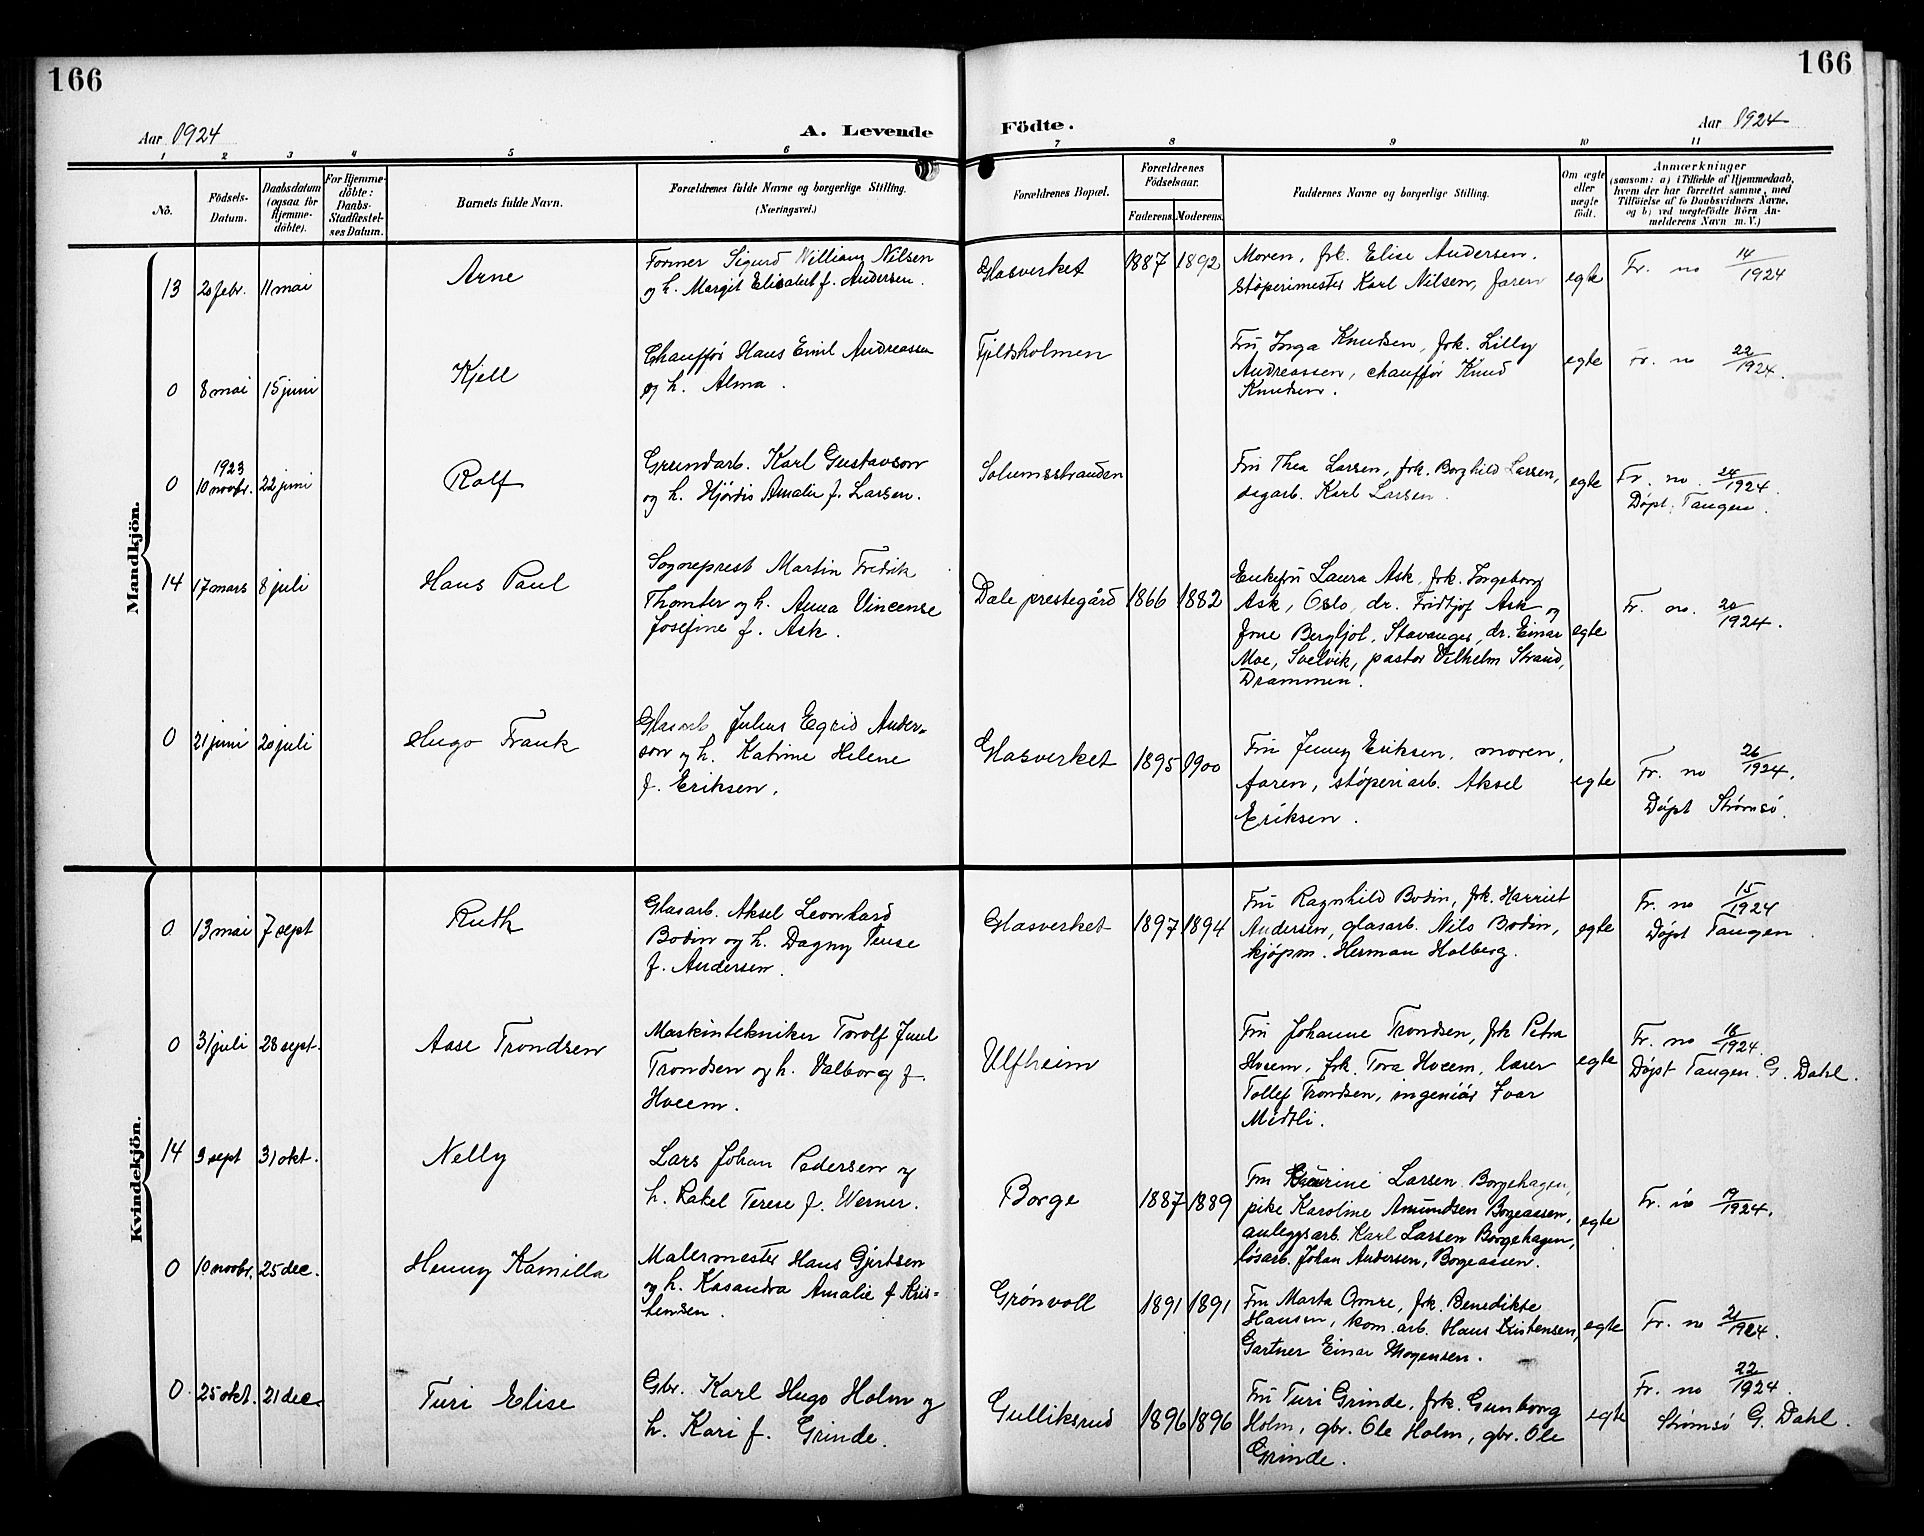 166
166
Aar 1924
A. Levende
Födte.
Aar 1924
1 2 3 4 5 6 7 8 9 10 11
No.
Födsels-Datum.
Daabsdatum (ogsaa for Hjemme-döbte).
For Hjemme-döbte: Daabs-Stadfæstel-ses Datum.
Barnets fulde Navn.
Forældrenes fulde Navne og borgerlige Stilling. (Næringsvei.)
Forældrenes Bopæl.
Forældrenes Födselsaar.
Faderens. Moderens.
Faddernes Navne og borgerlige Stilling.
Om ægte eller uægte födt.
Anmærkninger
(saasom: a) i Tilfælde af Hjemmedaab, hvem der har forrettet samme, med Tilföielse af to Daabsvidners Navne, og b) ved uægtefödte Börn Anmelderens Navn m. V.)
Mandkjön.
13 20 febr. 11 mai Arne
Former Sigurd William Nilsen
og h. Margit Elisabet f. Andersen.
Glasverket 1887 1892
Moren, frk. Elise Andersen.
støperimester Karl Nilsen, faren
egte
Fr. no 14/1924
0 8 mai 15 juni Kjell
Chauffør Hans Emil Andreassen
og h. Alma.
Fjeldsholmen
Fru Inga Knudsen, frk. Lilly
Andreassen, chauffør Knud
Knudsen.
egte
Fr. no 22/1924.
0 1923 10 novbr. 22 juni Rolf
Grundarb. Karl Gustavson
og h. Hjørdis Amalie f. Larsen.
Solumsstranden
Fru Thea Larsen, frk. Borghild Larsen,
sagarb. Karl Larsen.
egte
Fr. no. 24/1924.
Døpt. Tangen.
14 17 mars 8 juli Hans Paul
Sogneprest Martin Fredrik
Thomter og h. Anna Vincense
Josefine f. Ask.
Dale prestegård 1866 1882
Enkefru Laura Ask, frk. Ingeborg
Ask, Oslo, dr. Fridtjof Ask og
frue Bergljot, Stavanger, dr. Einar
Moe, Svelvik, pastor Vilhelm Strand,
Drammen.
egte
Fr. no. 20/1924.
0 21 juni 20 juli Hugo Frank
Glasarb. Julius Egrid Ander-
son og h. Katrine Helene
f. Eriksen.
Glasverket 1895 1900
Fru Jenny Eriksen, moren,
faren, støperiarb. Aksel
Eriksen.
egte
Fr. no 26/1924.
Døpt Strømsø.
Kvindekjön.
0 13 mai 7 sept Ruth
Glasarb. Aksel Leonhard
Bodin og h. Dagny
f. Andersen.
Glasverket 1897 1894
Fru Ragnhild Bodin, frk. Harriet
Andersen, glasarb. Nils Bodin,
kjøpm. Herman Holberg.
egte
Fr. no 15/1924
Døpt Tangen
0 31 juli 28 sept. Aase Trondsen
Maskintekniker Torolf Juul
Trondsen og h. Valborg f.
Hveem.
Ulfheim
Fru Johanne Trondsen, frk Petra
Hveem, frk. Tora Hveem, lærer
Tollef Trondsen, ingeniør Ivar
Midtli.
egte
Fr. no 18/1924.
Døpt Tangen. G. Dahl.
14 3 sept 31 okt. Nelly
Lars Johan Pedersen og
h. Rakel Terese f. Werner.
Borge 1887 1889
Fru Larsen Borgehagen,
pike Karoline Amundsen Borgeassen,
anleggsarb. Karl Larsen Borgehagen,
løsarb. Johan Andersen, Borgeassen.
egte
Fr. no 19/1924.
0 10 novbr. 25 dec. Henny Kamilla
Malermester Hans Gjertsen
og h. Kasandra Amalie f Kris-
tensen.
Grønvoll 1891 1891
Fru Marta Omre, frk. Benedikte
Hansen, kom. arb. Hans Kristensen,
Gartner Einar Mogensen.
egte
Fr. no 21/1924.
0. 25 okt. 21 dec. Turi Elise
Gbr. Karl Hugo Holm og
h. Kari f. Grinde.
Gulliksrud 1896 1896
Fru Turi Grinde, frk. Gunborg
Holm, gbr. Ole Holm, gbr. Ole
Grinde.
egte
Fr. no 22/1924.
Strømsø G. Dahl.